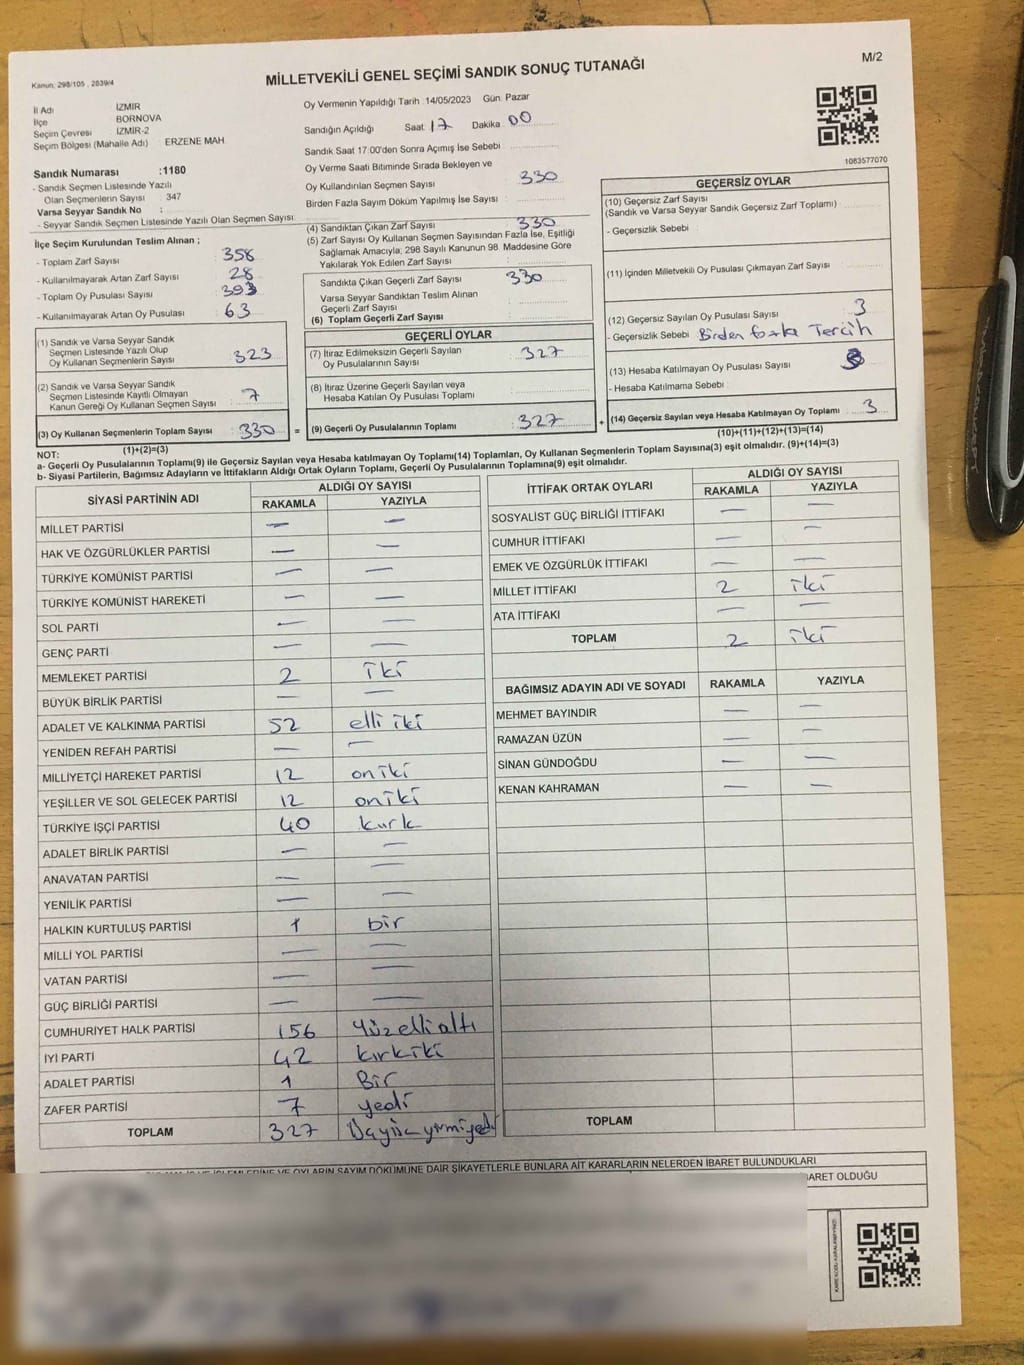 M/2
Kanun: 298/105 , 2839/4
MİLLETVEKİLİ GENEL SEÇİMİ SANDIK SONUÇ TUTANAĞI
İl Adı İZMİR
İlçe BORNOVA
Seçim Çevresi İZMİR-2
Seçim Bölgesi (Mahalle Adı) ERZENE MAH
Sandık Numarası :1180
- Sandık Seçmen Listesinde Yazılı
Olan Seçmenlerin Sayısı : 347
Varsa Seyyar Sandık No :
- Seyyar Sandık Seçmen Listesinde Yazılı Olan Seçmen Sayısı
İlçe Seçim Kurulundan Teslim Alınan ;
- Toplam Zarf Sayısı : 358
- Kullanılmayarak Artan Zarf Sayısı : 28
- Toplam Oy Pusulası Sayısı : 393
- Kullanılmayarak Artan Oy Pusulası : 63
(1) Sandık ve Varsa Seyyar Sandık
Seçmen Listesinde Yazılı Olup
Oy Kullanan Seçmenlerin Sayısı : 323
(2) Sandık ve Varsa Seyyar Sandık
Seçmen Listesinde Kayıtlı Olmayan
Kanun Gereği Oy Kullanan Seçmen Sayısı : 7
(3) Oy Kullanan Seçmenlerin Toplam Sayısı : 330
(1)+(2)=(3)
Oy Vermenin Yapıldığı Tarih :14/05/2023 Gün: Pazar
Sandığın Açıldığı Saat 17 Dakika 00
Sandık Saat 17:00'den Sonra Açımış İse Sebebi :
Oy Verme Saati Bitiminde Sırada Bekleyen ve
Oy Kullandırılan Seçmen Sayısı : 330
Birden Fazla Sayım Döküm Yapılmış İse Sayısı
(4) Sandıktan Çıkan Zarf Sayısı : 330
(5) Zarf Sayısı Oy Kullanan Seçmen Sayısından Fazla İse, Eşitliği
Sağlamak Amacıyla; 298 Sayılı Kanunun 98. Maddesine Göre
Yakılarak Yok Edilen Zarf Sayısı :
Sandıkta Çıkan Geçerli Zarf Sayısı : 330
Varsa Seyyar Sandıktan Teslim Alınan
Geçerli Zarf Sayısı :
(6) Toplam Geçerli Zarf Sayısı :
GEÇERLİ OYLAR
(7) İtiraz Edilmeksizin Geçerli Sayılan
Oy Pusulalarının Sayısı : 327
(8) İtiraz Üzerine Geçerli Sayılan veya
Hesaba Katılan Oy Pusulası Toplamı :
= (9) Geçerli Oy Pusulalarının Toplamı : 327
1083577070
GEÇERSİZ OYLAR
(10) Geçersiz Zarf Sayısı
(Sandık ve Varsa Seyyar Sandık Geçersiz Zarf Toplamı)
- Geçersizlik Sebebi
(11) İçinden Milletvekili Oy Pusulası Çıkmayan Zarf Sayısı
(12) Geçersiz Sayılan Oy Pusulası Sayısı : 3
- Geçersizlik Sebebi : Birden fazla Tercih
(13) Hesaba Katılmayan Oy Pusulası Sayısı :
- Hesaba Katılmama Sebebi :
+ (14) Geçersiz Sayılan veya Hesaba Katılmayan Oy Toplamı : 3
(10)+(11)+(12)+(13)=(14)
NOT:
a- Geçerli Oy Pusulalarının Toplamı(9) ile Geçersiz Sayılan veya Hesaba Katılmayan Oy Toplamı(14) Toplamları, Oy Kullanan Seçmenlerin Toplam Sayısına(3) eşit olmalıdır. (9)+(14)=(3)
b- Siyasi Partilerin, Bağımsız Adayların ve İttifakların Aldığı Ortak Oyların Toplamı, Geçerli Oy Pusulalarının Toplamına(9) eşit olmalıdır.
SİYASİ PARTİNİN ADI ALDIĞI OY SAYISI
RAKAMLA YAZIYLA
MİLLET PARTİSİ — —
HAK VE ÖZGÜRLÜKLER PARTİSİ — —
TÜRKİYE KOMÜNİST PARTİSİ — —
TÜRKİYE KOMÜNİST HAREKETİ — —
SOL PARTİ — —
GENÇ PARTİ — —
MEMLEKET PARTİSİ 2 iki
BÜYÜK BİRLİK PARTİSİ — —
ADALET VE KALKINMA PARTİSİ 52 elli iki
YENİDEN REFAH PARTİSİ — —
MİLLİYETÇİ HAREKET PARTİSİ 12 oniki
YEŞİLLER VE SOL GELECEK PARTİSİ 12 oniki
TÜRKİYE İŞÇİ PARTİSİ 40 kırk
ADALET BİRLİK PARTİSİ — —
ANAVATAN PARTİSİ — —
YENİLİK PARTİSİ — —
HALKIN KURTULUŞ PARTİSİ 1 bir
MİLLİ YOL PARTİSİ — —
VATAN PARTİSİ — —
GÜÇ BİRLİĞİ PARTİSİ — —
CUMHURİYET HALK PARTİSİ 156 Yüzellialtı
İYİ PARTİ 42 kırkiki
ADALET PARTİSİ 1 Bir
ZAFER PARTİSİ 7 yedi
TOPLAM 327
İTTİFAK ORTAK OYLARI ALDIĞI OY SAYISI
RAKAMLA YAZIYLA
SOSYALİST GÜÇ BİRLİĞİ İTTİFAKI — —
CUMHUR İTTİFAKI — —
EMEK VE ÖZGÜRLÜK İTTİFAKI — —
MİLLET İTTİFAKI 2 iki
ATA İTTİFAKI — —
TOPLAM 2 iki
BAĞIMSIZ ADAYIN ADI VE SOYADI RAKAMLA YAZIYLA
MEHMET BAYINDIR — —
RAMAZAN ÜZÜN — —
SİNAN GÜNDOĞDU — —
KENAN KAHRAMAN — —
TOPLAM
OYLARIN SAYIM DÖKÜMÜNE DAİR ŞİKAYETLERLE BUNLARA AİT KARARLARIN NELERDEN İBARET BULUNDUKLARI
BARET OLDUĞU